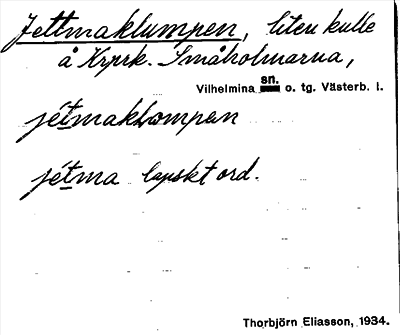 Jettmaklumpen, liten kulle
å Krprk. Småholmarna,
Vilhelmina sn. o. tg. Västerb. l.
jétmakLompen
jétma lapskt ord.
Thorbjörn Eliasson, 1934.